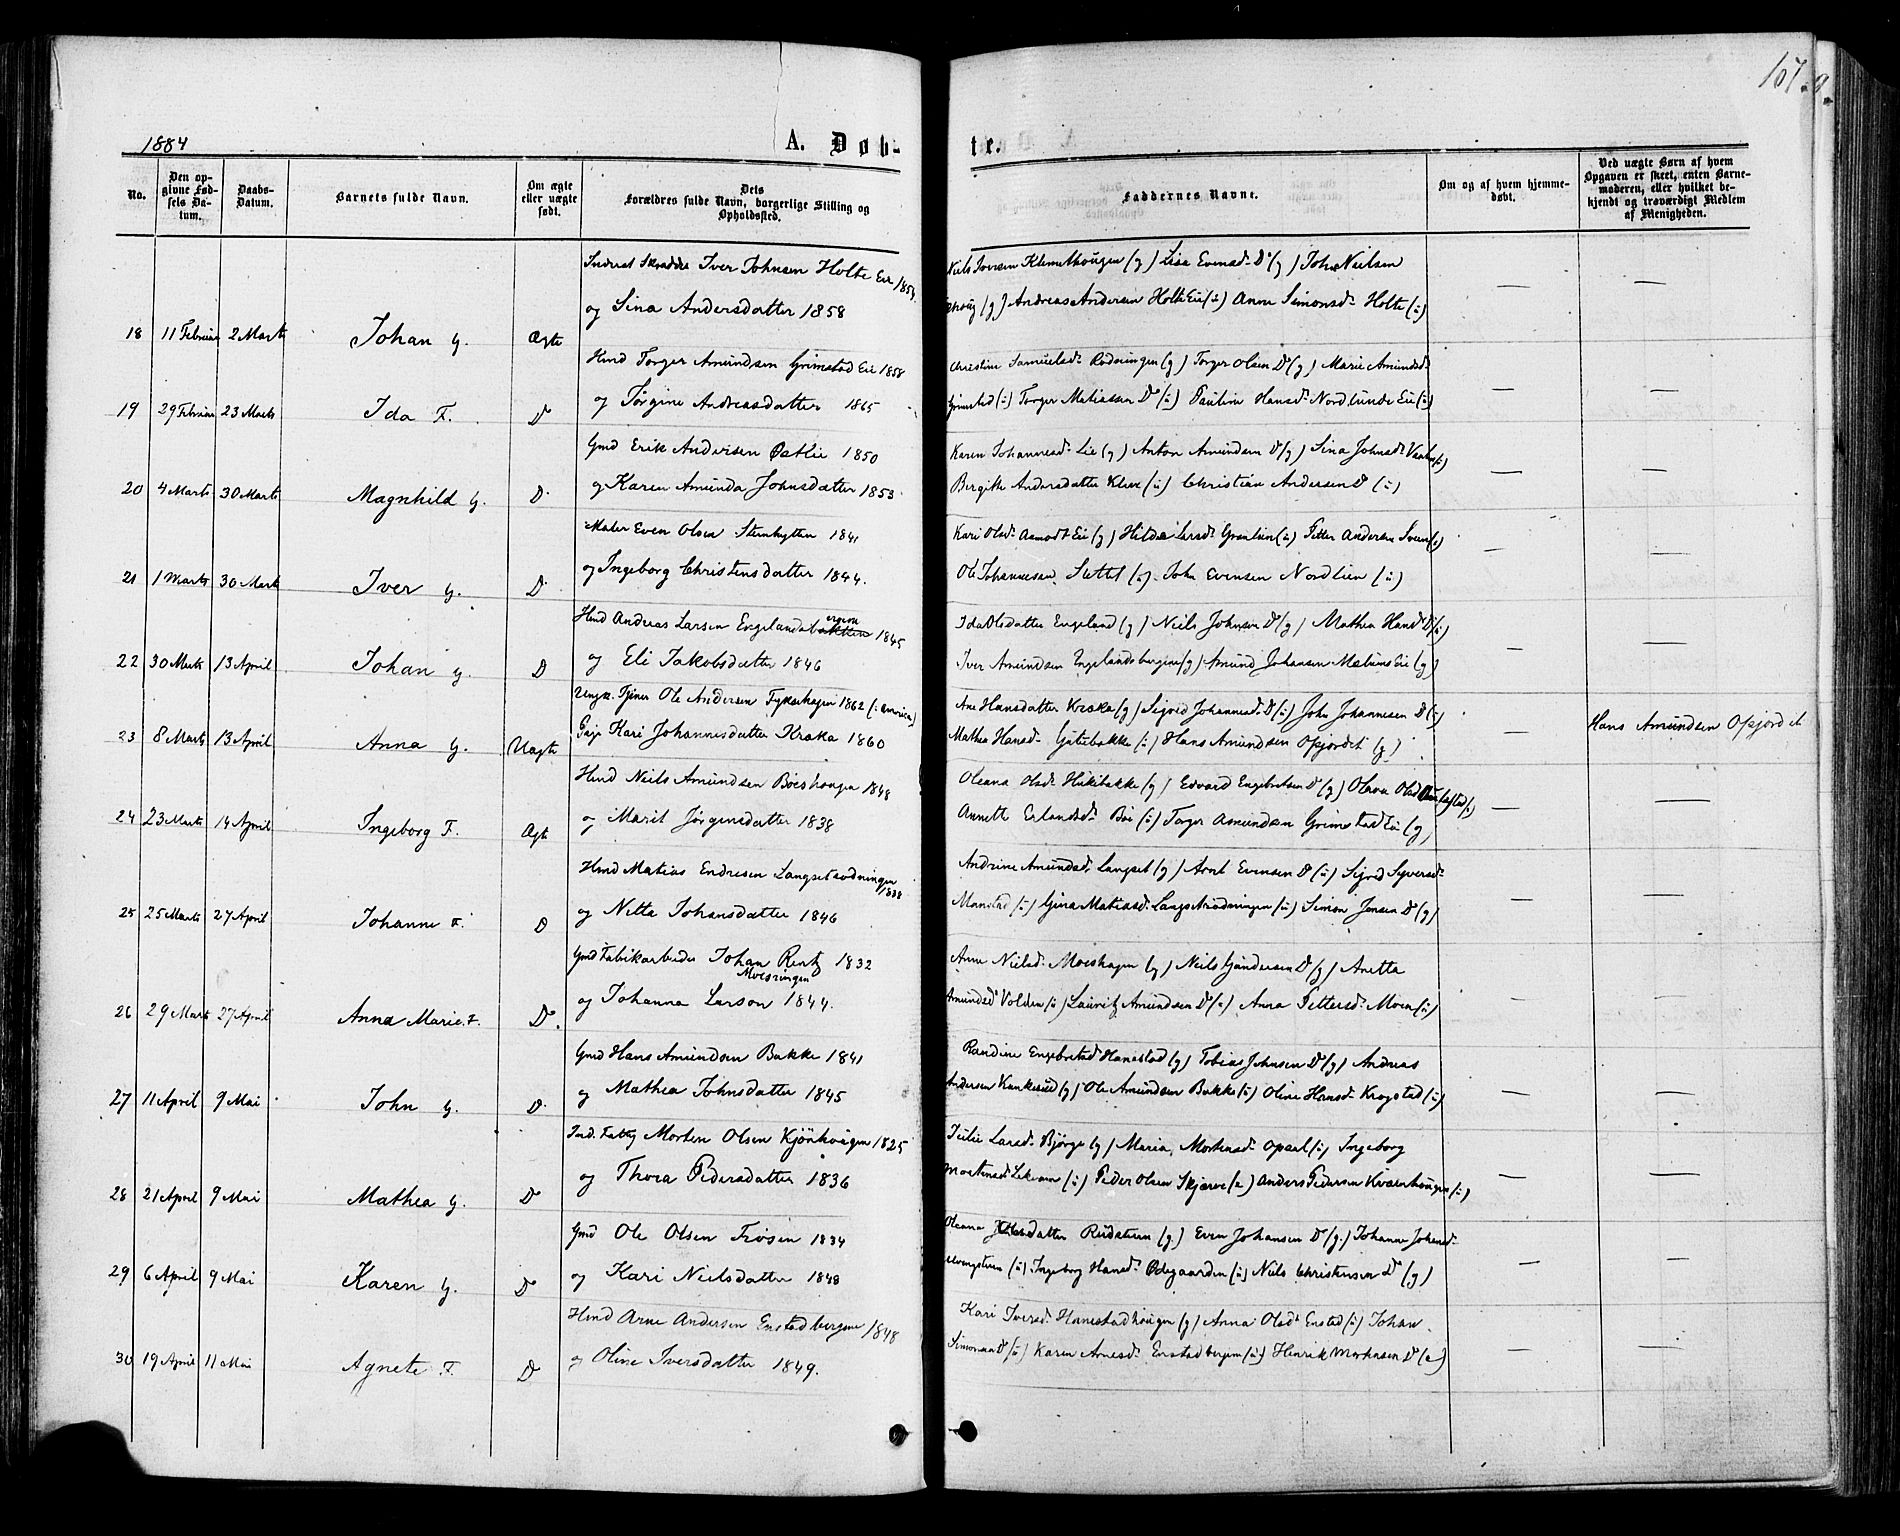 107.a.
1884
A. Døb-
te.
No.
Den op-
givne Fød-
sels Da-
tum.
Daabs-
Datum.
Barnets fulde Navn.
Om ægte
eller uægte
født.
Dets
Forældres fulde Navn, borgerlige Stilling og
Opholdssted.
Faddernes Navne.
Om og af hvem hjemme-
døbt.
Ved uægte Børn af hvem
Opgaven er skeet, enten Barne-
moderen, eller hvilket be-
kjendt og troværdigt Medlem
af Menigheden.
Inderst Skrædder Iver Johnsen Holte Eie 1854.
og Sina Andersdatter 1858
18 11 Februar 2 Marts Johan G. Ægte
Niels Iversen Klemethougen (g) Lisa Evensd. Do (g) John Nielsen
(g) Andreas Andersen Holte Eie (u) Anne Simonsd. Holte (u)
— —
Hmd Torger Amundsen Grimstad Eie 1858
og Jørgine Andreasdatter 1865
19 29 Februar 23 Marts Ida F. Do
Christine Samuelsd. Rødningen (g) Torger Olsen Do (g) Marie Amundsd.
Grimstad (u) Torger Matiassen Do (u) Pauline Hansd. Nordlunde Eie (u)
— —
Gmd Erik Andersen Østlie 1850
og Karen Amunda Johnsdatter 1853
20 4 Marts 30 Marts Magnhild G. Do
Karen Johannesd. Lie (g) Anton Amundsen Do (g) Sina Johnsd. (u)
Bergitte Andersdatter Kleve (u) Christian Andersen Do (u)
— —
Maler Even Olsen Stenhytten 1841
og Ingeborg Christensdatter 1844.
21 1 Marts 30 Marts Iver G. Do
Kari Olsd. Aamodt Eie (g) Hilda Larsd. Grønlien (u) Petter Andersen Sveen (g)
Ole Johannesen Slettet (u). John Evensen Nordlien (u)
— —
Hmd Andreas Larsen Engelandsbergene 1845
og Eli Jakobsdatter 1846
22 30 Marts 13 April Johan G. Do
Ida Olsdatter Engeland (g) Niels Johnsen Do (g) Mathea Hansd. Do (u)
Iver Amundsen Engelandsbergene (g) Amund Johansen Melums Eie (g)
— —
Ungk. Tjener Ole Andersen Fyksehagen 1862 (i America)
Pige Kari Johannesdatter Kraka 1860
23 8 Marts 13 April Anna G. Uægte
Ane Hansdatter Kraka (g) Sigrid Johannesd. Do (u) John Johannesen Do (u)
Mathea Hansd. Gutebakke (u) Hans Amundsen Opjordet (g)
— Hans Amundsen Opjordet
Hmd Niels Amundsen Boeshougen 1848
og Marit Jørgensdatter 1838
24 23 Marts 14 April Ingeborg F. Ægte
Oleana Olsd. Hukibakke (g) Edvard Engebretsen Do (g) Olava Olsd. (u)
Annette Erlandsd. Boe (u) Torger Amundsen Grimstad Eie (g)
— —
Hmd Matias Endresen Langsetrødningen 1838
og Netta Johansdatter 1846
25 25 Marts 27 April Johanne F. Do
Andrine Amundsd. Langset (g) Arnt Evensen Do (u) Sigrid Syversd.
Monstad (u) Gina Matiasd. Langsetrødningen (u) Simon Jensen Do (g)
— —
Gmd Fabrikarbeider Johan Rentz 1832
Moesvingen
og Johanna Larson 1844.
26 29 Marts 27 April Anna Marie. F. Do.
Anne Nielsd. Moeshagen (g) Niels Gundersen Do (g) Anetta
Amundsd. Volden (u) Lauritz Amundsen Do (u) Anna Pettersd. Moen (u)
— —
Gmd Hans Amundsen Bakke 1841
og Mathea Johnsdatter 1845
27 11 April 9 Mai John G. Do
Randine Engebretsd. Hanestad (g) Tobias Johnsen Do (g) Andreas
Andersen Kankerud (g) Ole Amundsen Bakke (u) Oline Hansd. Krogstad (u)
— —
Ind. Fattig Morten Olsen Kjønhougen 1825
og Thora Pedersdatter 1836
28 21 April 9 Mai Mathea G. Do
Julie Larsd. Bjørge (g) Maria Mortensd. Opsal (u) Ingeborg
Mortensd. (u) Peder Olsen Skjærve (u) Anders Pedersen Kvænhougen (u)
— —
Gmd Ole Olsen Frøsen 1834
og Kari Nielsdatter 1848
29 6 April 9 Mai Karen G. Do
Oleana Olsdatter Rudstuen (g.) Even Johansen Do (g.) Johanne Johansd.
(u) Ingeborg Hansd. Ødegaarden (u) Niels Christensen Do (g)
— —
Hmd Arne Andersen Enstadbergene 1848
og Oline Iversdatter 1849.
30 19 April 11 Mai Agnete F. Do
Kari Iversd. Hanestadhougen (g) Anna Olsd. Enstad (u) Johan
Simonsen Do (u) Karen Arnesd. Enstadbergene (u) Henrik Mortensen Do (u)
— —